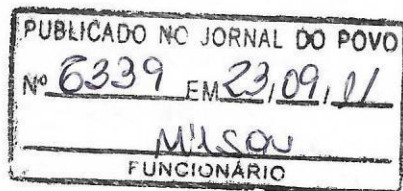 PUBLICADO NO JORNAL DO POVO
Nº 6339 EM 23/09/11
Milson
FUNCIONÁRIO